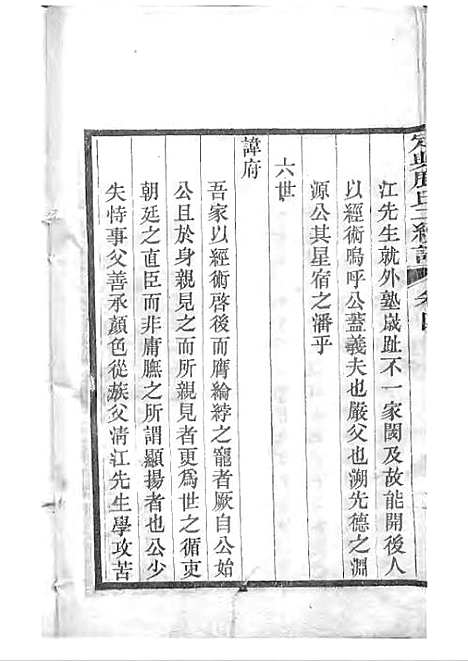 定興鹿氏二續譜 卷四
江先生就外塾歲趾不一家閡及故能開後人
以經術嗚呼公蓋義夫也嚴父也溯先德之淵
源公其星宿之潘乎
六世
諱府
吾家以經術啓後而膺綸綍之寵者厥自公始
公且於身親見之而所親見者更爲世之循吏
朝廷之直臣而非庸臕之所謂顯揚者也公少
失恃事父善承顏色從族父清江先生學攻苦